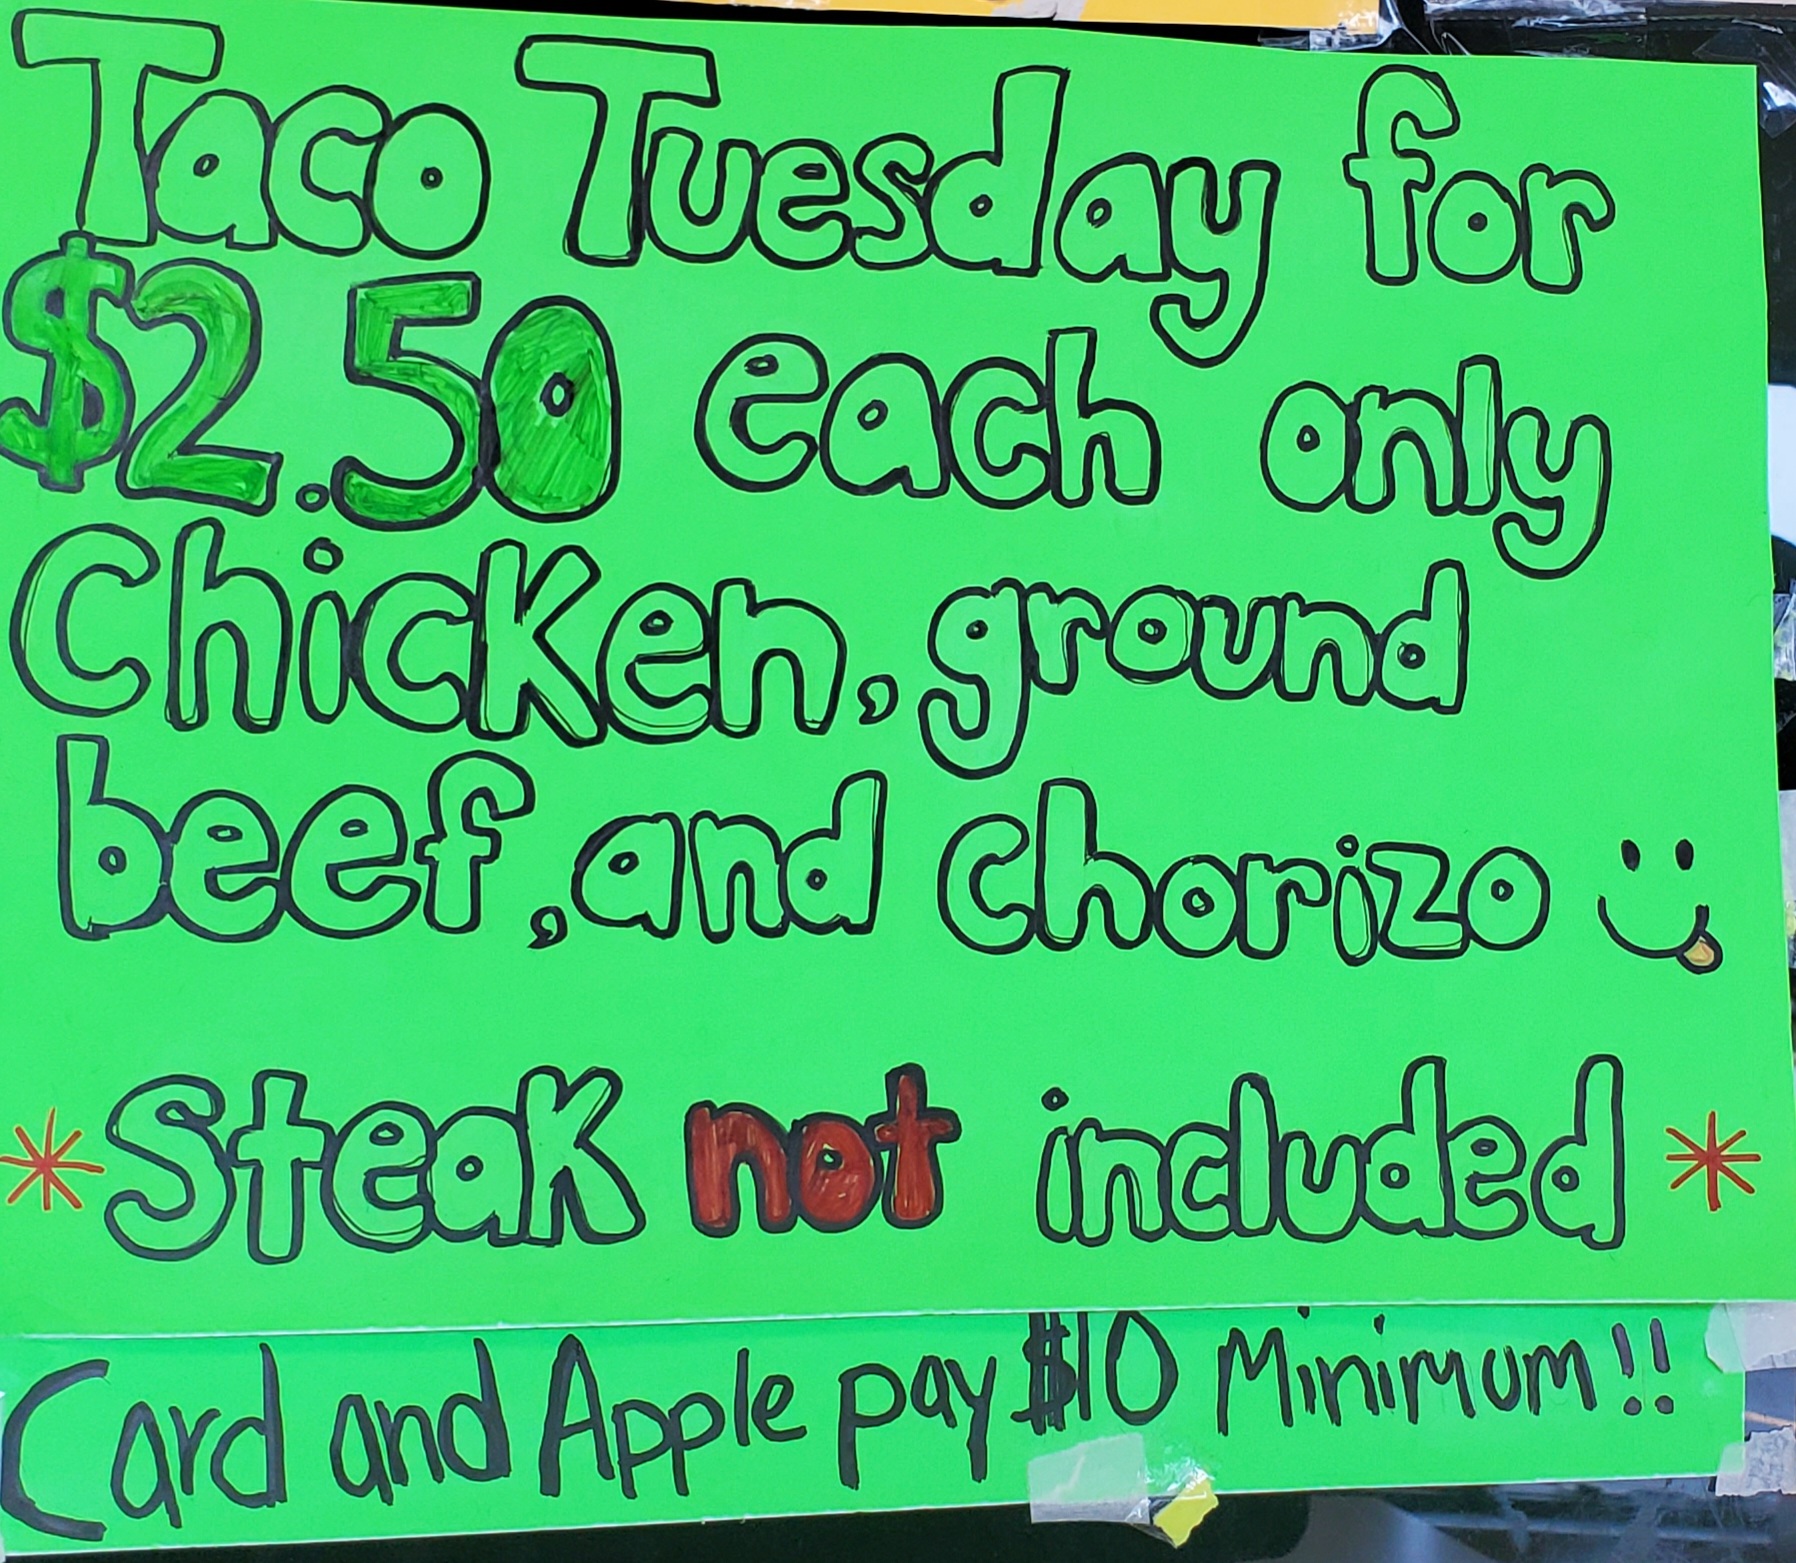 Taco Tuesday for
$2.50 each only
Chicken, ground
beef, and Chorizo
* Steak not included *
Card and Apple pay $10 Minimum!!